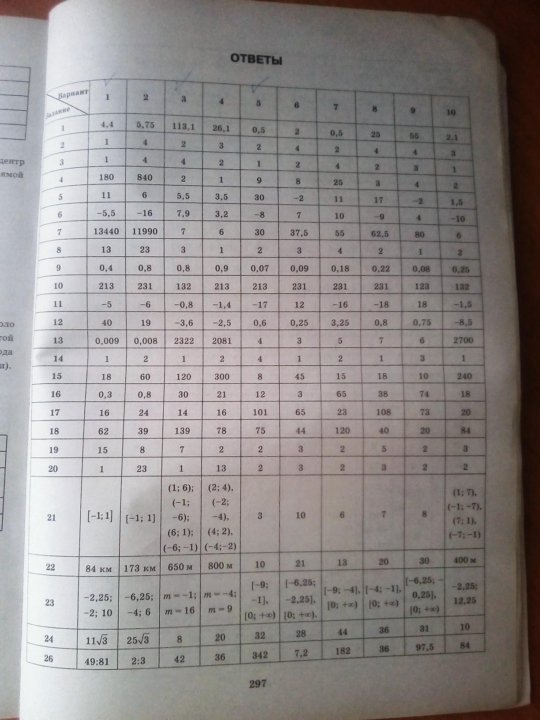 ОТВЕТЫ
Вариант 1 2 3 4 5 6 7 8 9 10
Задание
1 4,4 5,75 113,1 26,1 0,5 2 0,5 25 55 2,1
2 1 4 2 3 2 4 2 4 4 3
3 1 4 4 2 1 2 4 2 3 1
4 180 840 2 1 9 8 25 3 4 2
5 11 6 5,5 3,5 30 –2 11 17 –2 1,5
6 –5,5 –16 7,9 3,2 –8 7 10 –9 4 –10
7 13440 11990 7 6 30 37,5 55 62,5 80 6
8 13 23 3 1 2 3 4 2 1 2
9 0,4 0,8 0,8 0,9 0,07 0,09 0,18 0,22 0,08 0,25
10 213 231 132 213 213 231 231 231 123 132
11 –5 –6 –0,8 –1,4 –17 12 –16 –18 18 –1,5
12 40 19 –3,6 –2,5 0,6 0,25 3,25 0,8 0,75 –8,5
13 0,009 0,008 2322 2081 4 3 5 7 6 2700
14 1 2 1 2 4 1 2 1 3 1
15 18 60 120 300 8 45 15 18 10 240
16 0,3 0,8 30 21 12 3 65 38 74 18
17 16 24 14 16 101 65 23 108 73 20
18 62 39 139 78 75 44 120 40 20 84
19 15 8 7 2 2 3 2 5 2 3
20 1 23 1 13 2 3 2 3 2 2
21 [–1; 1] [–1; 1] (1; 6); (–1; –6); (6; 1); (–6; –1) (2; 4), (–2; –4), (4; 2), (–4;–2) 3 10 6 7 8 (1; 7), (–1; –7), (7; 1), (–7; –1)
22 84 км 173 км 650 м 800 м 10 21 13 20 30 400 м
23 –2,25; –2; 10 –6,25; –4; 6 m = –1; m = 16 m = –4; m = 9 [–9; –1], [0; +∞) [–6,25; –2,25], [0; +∞), [–9; –4], [0; +∞) [–4; –1], [0; +∞) [–6,25; –0,25], [0; +∞) –2,25; 12,25
24 11√3 25√3 8 20 32 28 44 36 31 10
26 49:81 2:3 42 36 342 7,2 182 36 97,5 84
297
центр